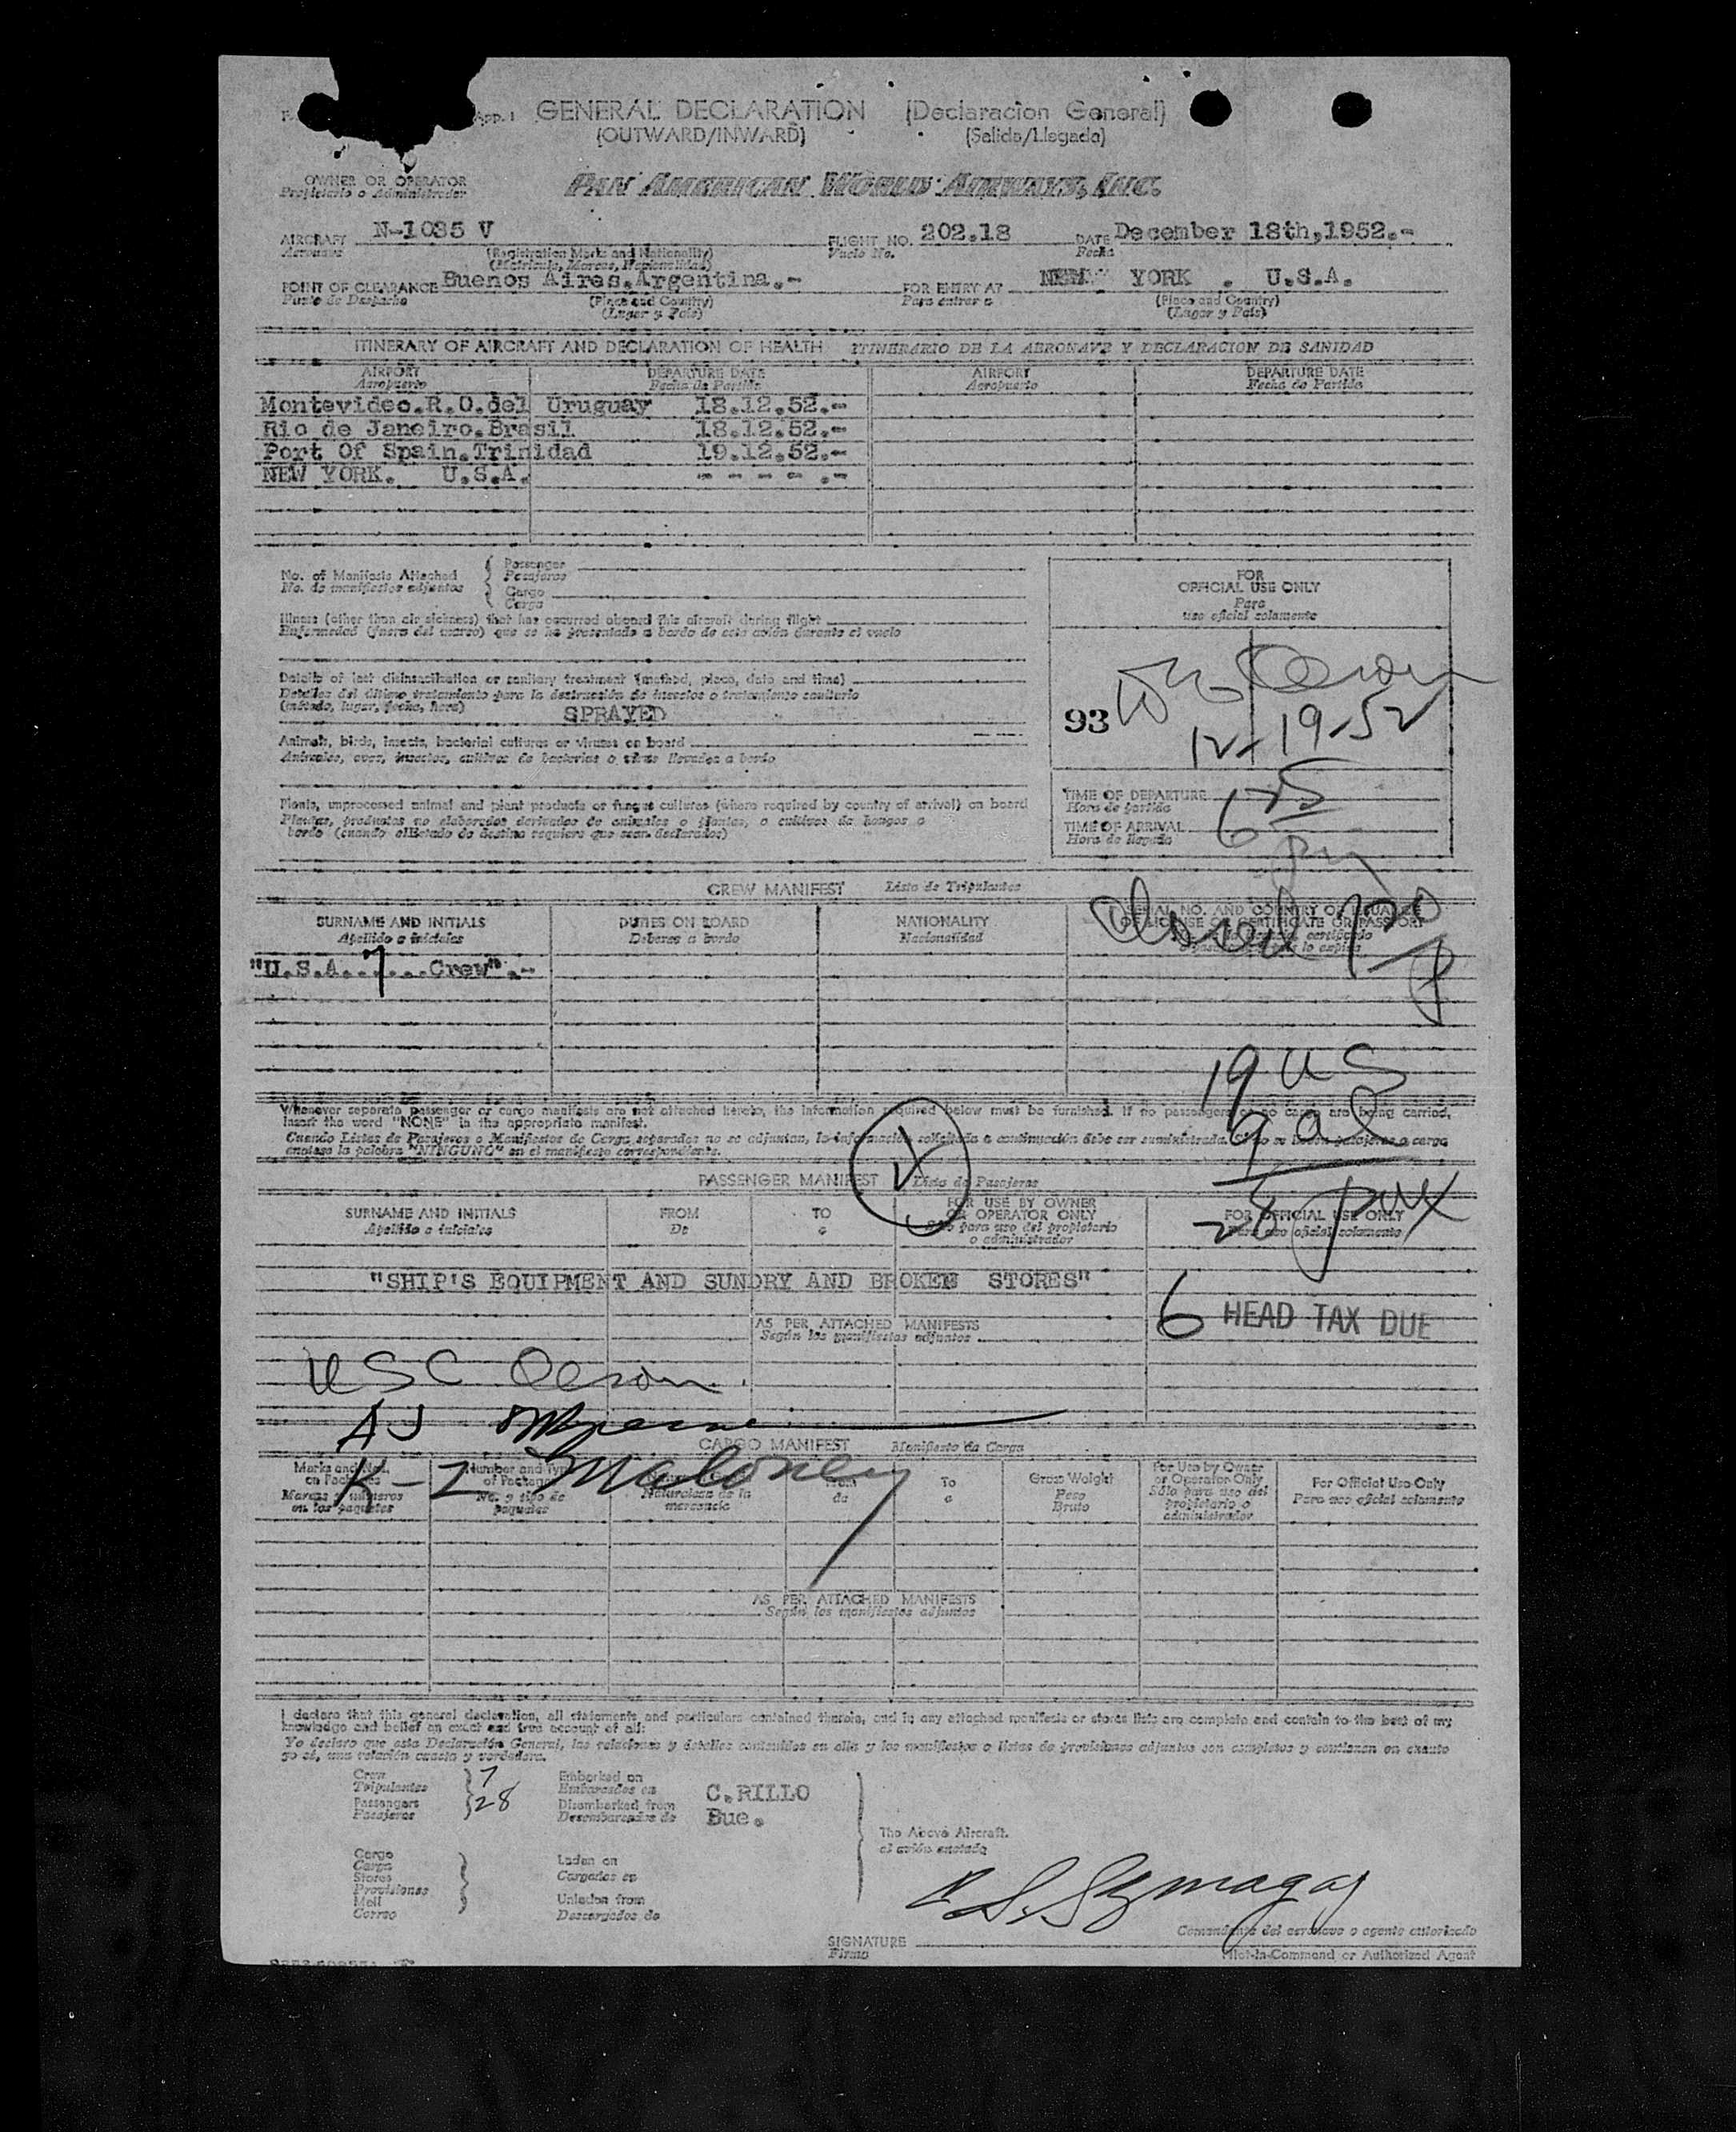 App. I GENERAL DECLARATION (Declaracion General)
(OUTWARD/INWARD) (Salida/Llegada)
OWNER OR OPERATOR
Propietario o Administrador
PAN AMERICAN WORLD AIRWAYS, INC.
AIRCRAFT N-1035 V FLIGHT NO. 202.18 DATE December 18th,1952.-
Aeronave (Registration Marks and Nationality) Vuelo No. Fecha
(Matricula, Marcas, Nacionalidad)
POINT OF CLEARANCE Buenos Aires.Argentina.- FOR ENTRY AT NEW YORK . U.S.A.
Punto de Despacho (Place and Country) Para entrar a (Place and Country)
(Lugar y País) (Lugar y País)
ITINERARY OF AIRCRAFT AND DECLARATION OF HEALTH ITINERARIO DE LA AERONAVE Y DECLARACION DE SANIDAD
AIRPORT DEPARTURE DATE AIRPORT DEPARTURE DATE
Aeropuerto Fecha de Partida Aeropuerto Fecha de Partida
Montevideo.R.O.del Uruguay 18.12.52.-
Rio de Janeiro.Brasil 18.12.52.-
Port Of Spain.Trinidad 19.12.52.-
NEW YORK. U.S.A. - - - - .-
No. of Manifests Attached Passenger
No. de manifiestos adjuntos Pasajeros
Cargo
Carga
Illness (other than air sickness) that has occurred aboard this aircraft during flight
Enfermedad (fuera del mareo) que se ha presentado a bordo de este avión durante el vuelo
Details of last disinsectization or sanitary treatment (method, place, date and time)
Detalles del último tratamiento para la destrucción de insectos o tratamiento sanitario
(método, lugar, fecha, hora)
SPRAYED
Animals, birds, insects, bacterial cultures or viruses on board
Animales, aves, insectos, cultivos de bacterias o virus llevados a bordo
Plants, unprocessed animal and plant products or fungus cultures (where required by country of arrival) on board
Plantas, productos no elaborados derivados de animales o plantas, o cultivos de hongos a
bordo (cuando el Estado de destino requiera que sean declarados)
FOR
OFFICIAL USE ONLY
Para
uso oficial solamente
93
12-19-52
TIME OF DEPARTURE
Hora de partida
625
TIME OF ARRIVAL
Hora de llegada
pm
CREW MANIFEST Lista de Tripulantes
SURNAME AND INITIALS DUTIES ON BOARD NATIONALITY SERIAL NO. AND COUNTRY OF ISSUANCE
Apellido e iniciales Deberes a bordo Nacionalidad OF LICENSE OR CERTIFICATE OR PASSPORT
"U.S.A..7...Crew".-
19 US
9 al
28 pax
Whenever separate passenger or cargo manifests are not attached hereto, the information required below must be furnished. If no passengers or no cargo are being carried,
insert the word "NONE" in the appropriate manifest.
Cuando Listas de Pasajeros o Manifiestos de Carga separados no se adjuntan, la información solicitada a continuación debe ser suministrada. Si no se llevan pasajeros o carga
anótese la palabra "NINGUNO" en el manifiesto correspondiente.
PASSENGER MANIFEST Lista de Pasajeros
SURNAME AND INITIALS FROM TO FOR USE BY OWNER FOR OFFICIAL USE ONLY
Apellido e iniciales De a OR OPERATOR ONLY Para uso oficial solamente
Sólo para uso del propietario
o administrador
"SHIP'S EQUIPMENT AND SUNDRY AND BROKEN STORES"
6 HEAD TAX DUE
AS PER ATTACHED MANIFESTS
Según los manifiestos adjuntos
USC
AJ
K-2 Maloney
CARGO MANIFEST Manifiesto de Carga
Marks and Nos. on Packages Number and Type of Packages To Gross Weight For Use by Owner or Operator Only For Official Use Only
Marcas y números en los paquetes No. y tipo de paquetes Naturaleza de la mercancía de a Peso Bruto Sólo para uso del propietario o administrador Para uso oficial solamente
AS PER ATTACHED MANIFESTS
Según los manifiestos adjuntos
I declare that this general declaration, all statements and particulars contained therein, and in any attached manifests or stores lists are complete and contain to the best of my
knowledge and belief an exact and true account of all:
Yo declaro que esta Declaración General, las relaciones y detalles contenidos en ella y los manifiestos o listas de provisiones adjuntos son completos y contienen en cuanto
yo sé, una relación exacta y verdadera.
Crew 7 Embarked on
Tripulantes Embarcados en C.RILLO
Passengers 28 Disembarked from
Pasajeros Desembarcados de Bue.
The Above Aircraft.
el avión anotado
Cargo Laden on
Carga Cargados en
Stores
Provisiones
Mail Unladen from
Correo Descargados de
Comandante del aeronave o agente autorizado
SIGNATURE
Firma Pilot-in-Command or Authorized Agent